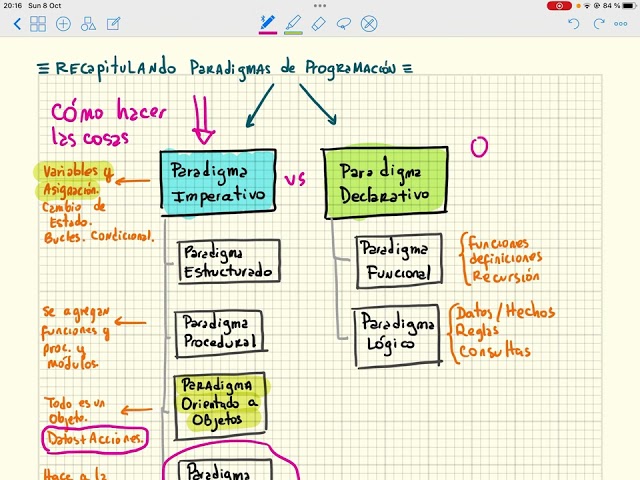 20:16 Sun 8 Oct
84 %
≡ RECapitULANDO PARADIGMAS de PROGRAMACIÓN ≡
CÓMO hacer
las cosas
Paradigma
Imperativo
vs
Paradigma
Declarativo
O
Variables y
Asignación.
Cambio de
Estado.
Bucles. Condicional.
Paradigma
Estructurado
Paradigma
Funcional
Funciones
definiciones
Recursión
Se agregan
funciones y
proc. y
módulos.
Paradigma
Procedural
Paradigma
Lógico
Datos / Hechos
Reglas
Consultas
Todo es un
Objeto.
Datos+Acciones.
PARADIGMA
Orientado a
Objetos
Hace a la
Paradigma